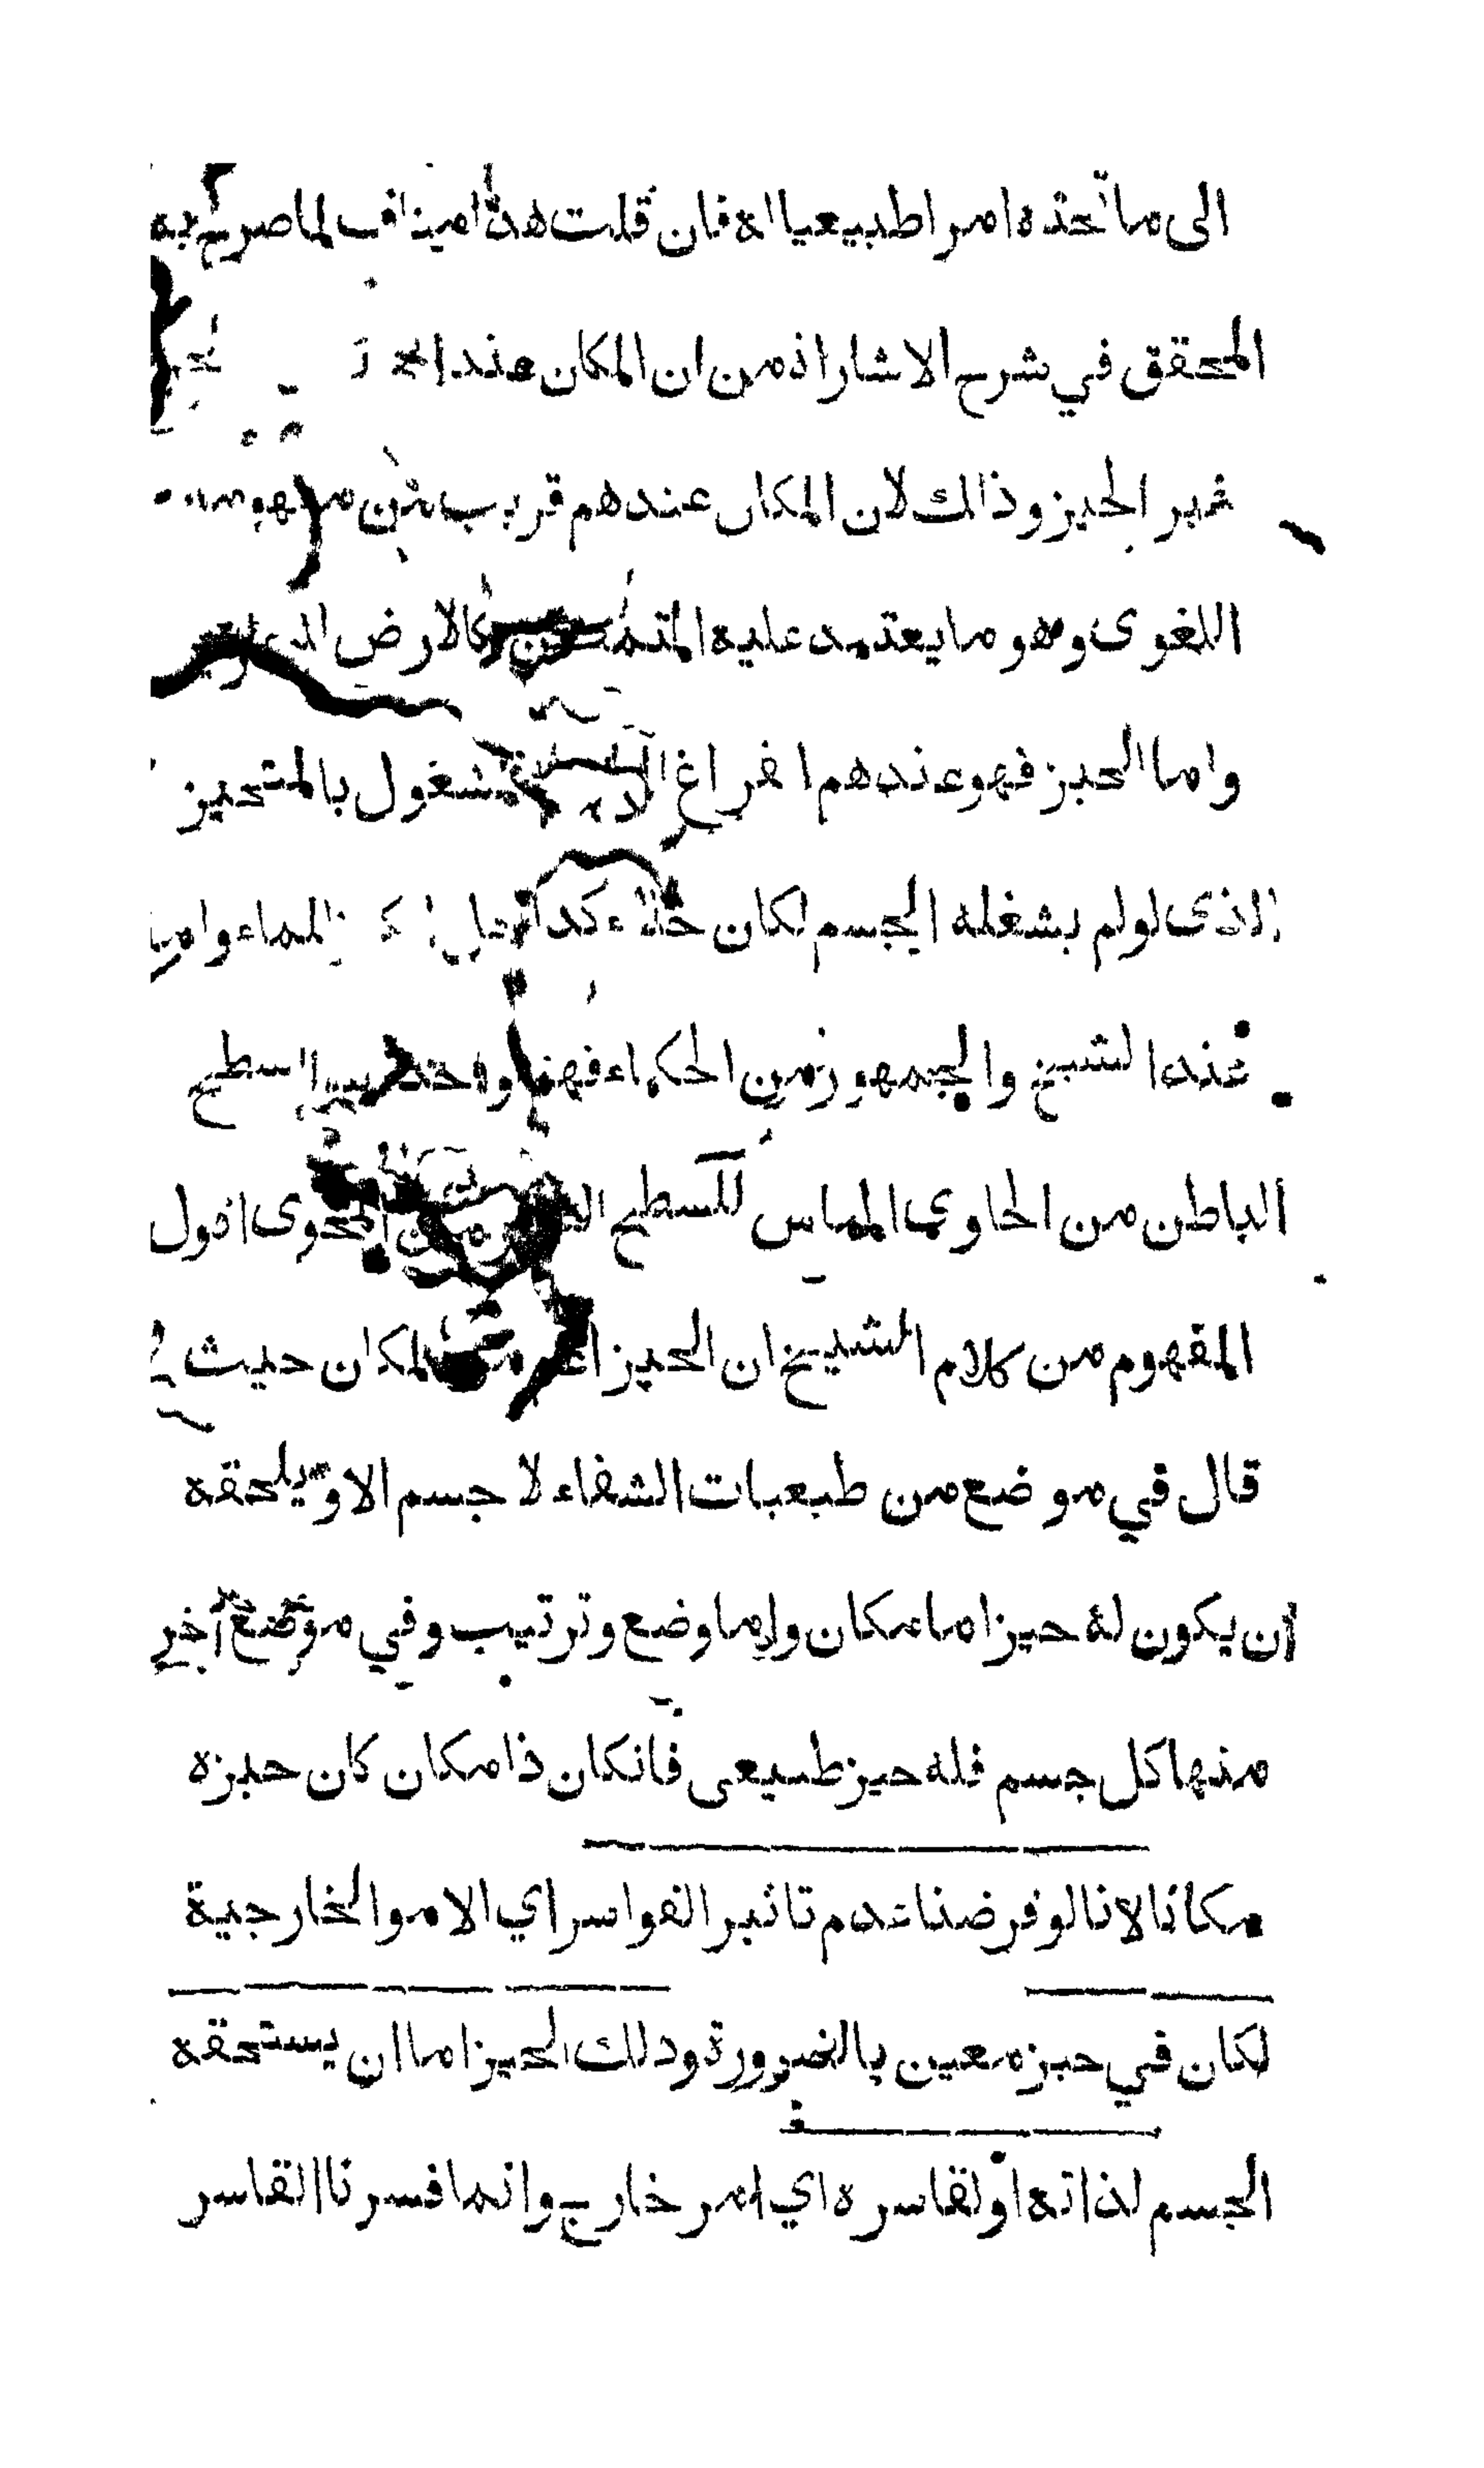 الى ما تحذه امرا طبيعيا اه فان قلت هذا مناف لما صرح به
المحقق في شرح الاشارات من ان المكان عند
غير الحيز وذالك لان المكان عندهم قريب من مفهومه
اللغوى وهو ما يعتمد عليه المتمكن كالارض
واما الحيز فهو عندهم الفراغ المشغول بالمتحيز
الذى لو لم يشغله الجسم لكان خلاء كداخل للماء واما
عند الشيخ والجمهور من الحكماء فهما واحد السطح
الباطن من الحاوي المماس للسطح من المحوى اقول
المفهوم من كلام الشيخ ان الحيز اعم من المكان حيث
قال في موضع من طبعيات الشفاء لا جسم الا ويلحقه
ان يكون له حيز اما مكان واما وضع وترتيب وفي موضع آخر
منها كل جسم فله حيز طبيعى فانكان ذا مكان كان حيزه
مكانا لانا لو فرضنا عدم تاثير القواسر اي الامور الخارجية
لكان في حيز معين بالضرورة وذلك الحيز اما ان يستحقه
الجسم لذاته او لقاسره اي امر خارج وانما فسرنا القاسر